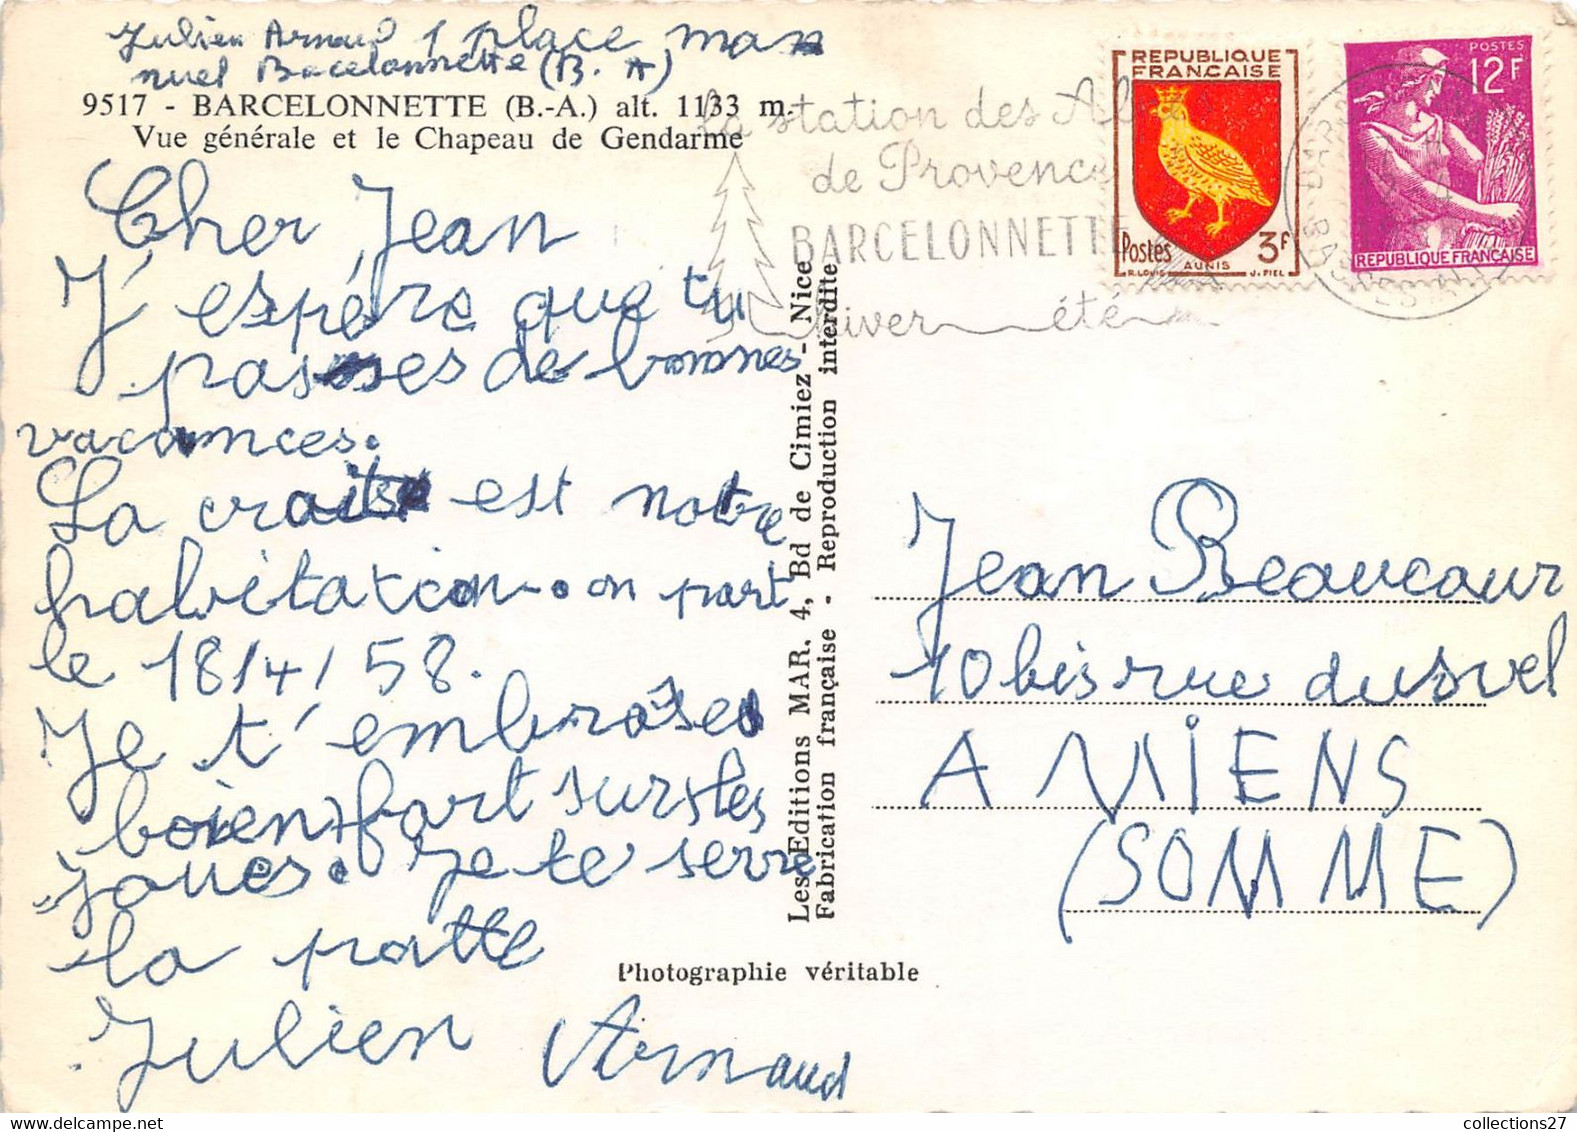 Julien Arnaud 1 place man
nuel Bacelonnette (B. A)
9517 - BARCELONNETTE (B.-A.) alt. 1133 m.
Vue générale et le Chapeau de Gendarme
Cher Jean
J'espére que tu
passes de bonnes
vacances.
La croix est notre
habitation. on part
le 18/4/58.
Je t'embrasse
bien fort sur les
joues. Je te serre
la patte
Julien Arnaud
la station des Alpes
de Provence
BARCELONNETTE
hiver été
REPUBLIQUE
FRANÇAISE
Postes 3F
AUNIS
R. LOUIS J. PIEL
POSTES
12F
REPUBLIQUE FRANÇAISE
Les Editions MAR. 4, Bd de Cimiez - Nice
Fabrication française - Reproduction interdite
Jean Beaucour
10 bis rue dusevel
AMIENS
(SOMME)
Photographie véritable
collections27